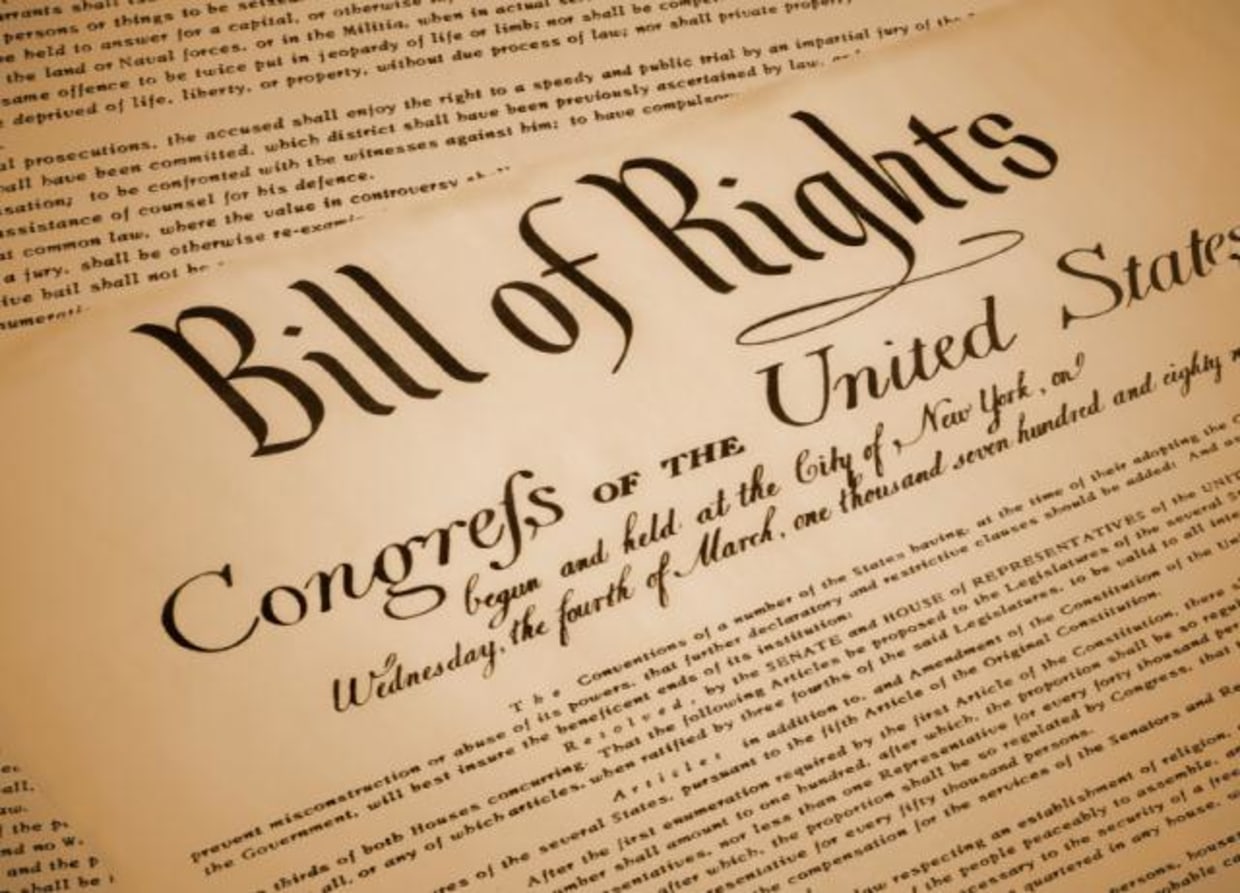 rrants shall
persons or things to be seized
held to answer for a capital, or otherwise
the land or Naval forces, or in the Militia, when in actual
same offence to be twice put in jeopardy of life or limb; nor shall be
deprived of life, liberty, or property, without due process of law; nor shall private property
al prosecutions, the accused shall enjoy the right to a speedy and public trial by an impartial jury of the
all have been committed, which district shall have been previously ascertained by law,
sation; to be confronted with the witnesses against him; to have compulsor
assistance of counsel for his defence.
at common law, where the value in controversy
a jury, shall be otherwise re-exami
ive bail shall not be
Bill of Rights
Congreſs OF THE United States
begun and held at the City of New York, on
Wednesday, the fourth of March, one thousand seven hundred and eighty
The Conventions of a number of the States having, at the time of their adopting the
prevent misconstruction or abuse of its powers, that further declaratory and restrictive clauses should be added: And
the Government, will best insure the beneficent ends of its institution:
Resolved, by the SENATE and HOUSE of REPRESENTATIVES of the UNIT
thirds of both Houses concurring. That the following Articles be proposed to the Legislatures of the several
all, or any of which articles, when ratified by three fourths of the said Legislatures, to be valid to all
Articles in addition to, and Amendment of the Constitution of the
res of the several States, pursuant to the fifth Article of the Original Constitution.
After the first enumeration required by the first Article of the Constitution, there
mber shall amount to one hundred, after which, the proportion shall be so
sentatives, nor less than one Representative for every forty thousand
after which, the proportion shall be so regulated by Congress, that
resentative for every fifty thousand persons.
the compensation for the services of the Senators and
law respecting an establishment of religion,
the people peaceably to assemble,
cessary to the security of a free
quartered in any house,
persons,